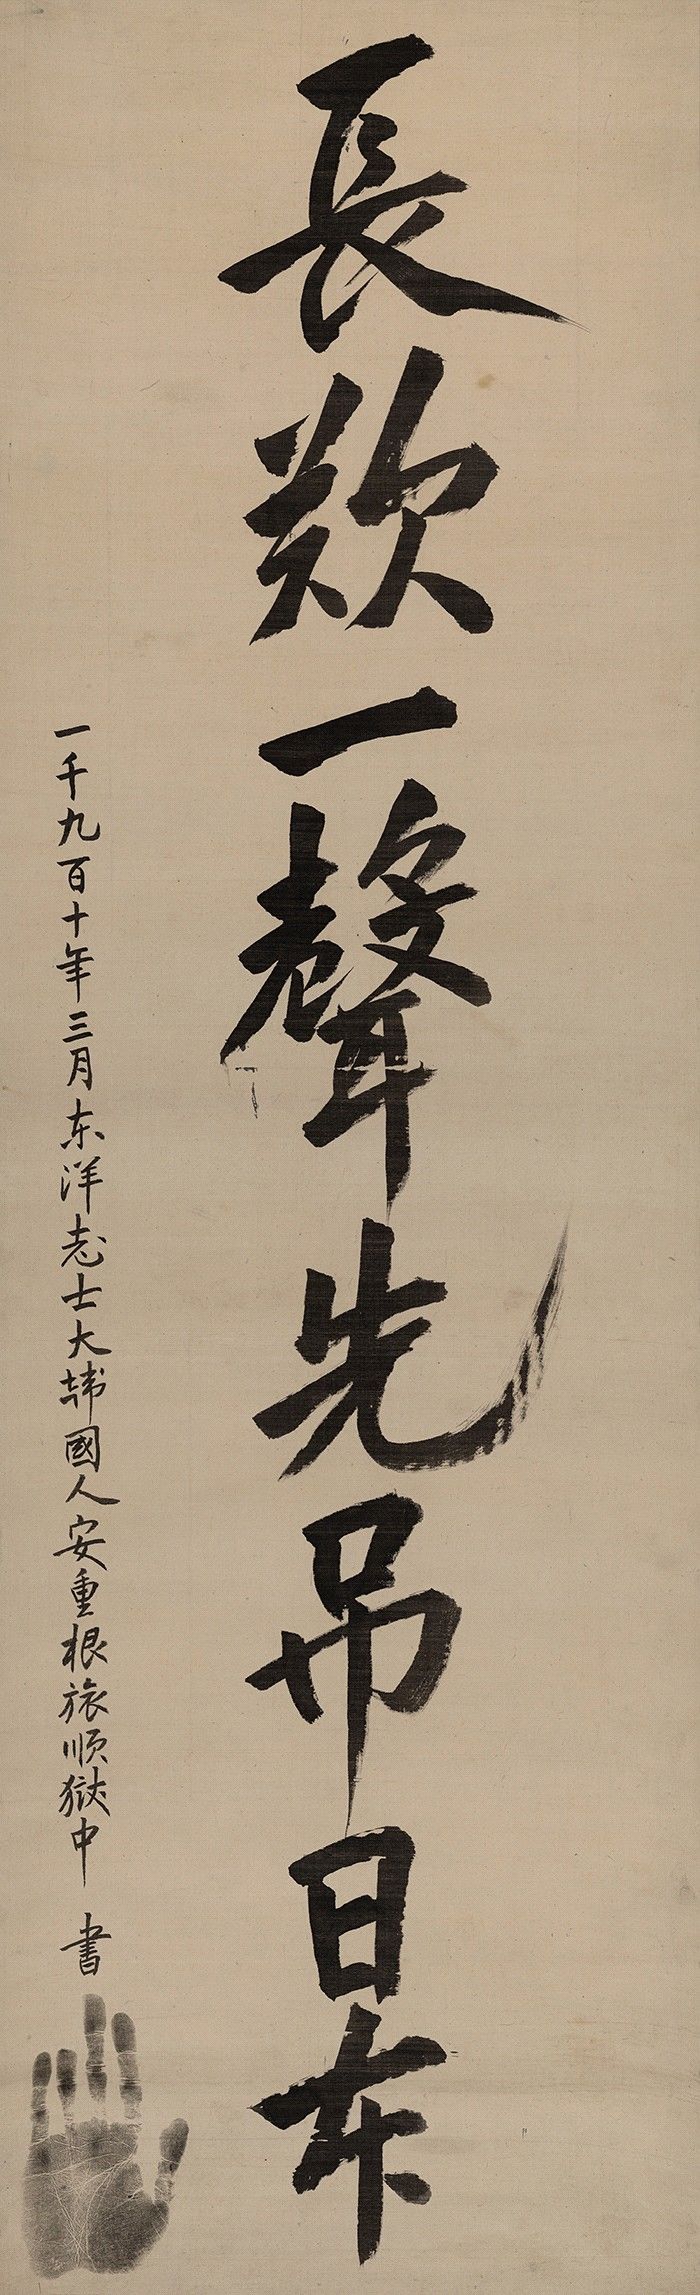 長歎一聲先吊日本
一千九百十年三月东洋志士大韩國人安重根旅顺獄中 書